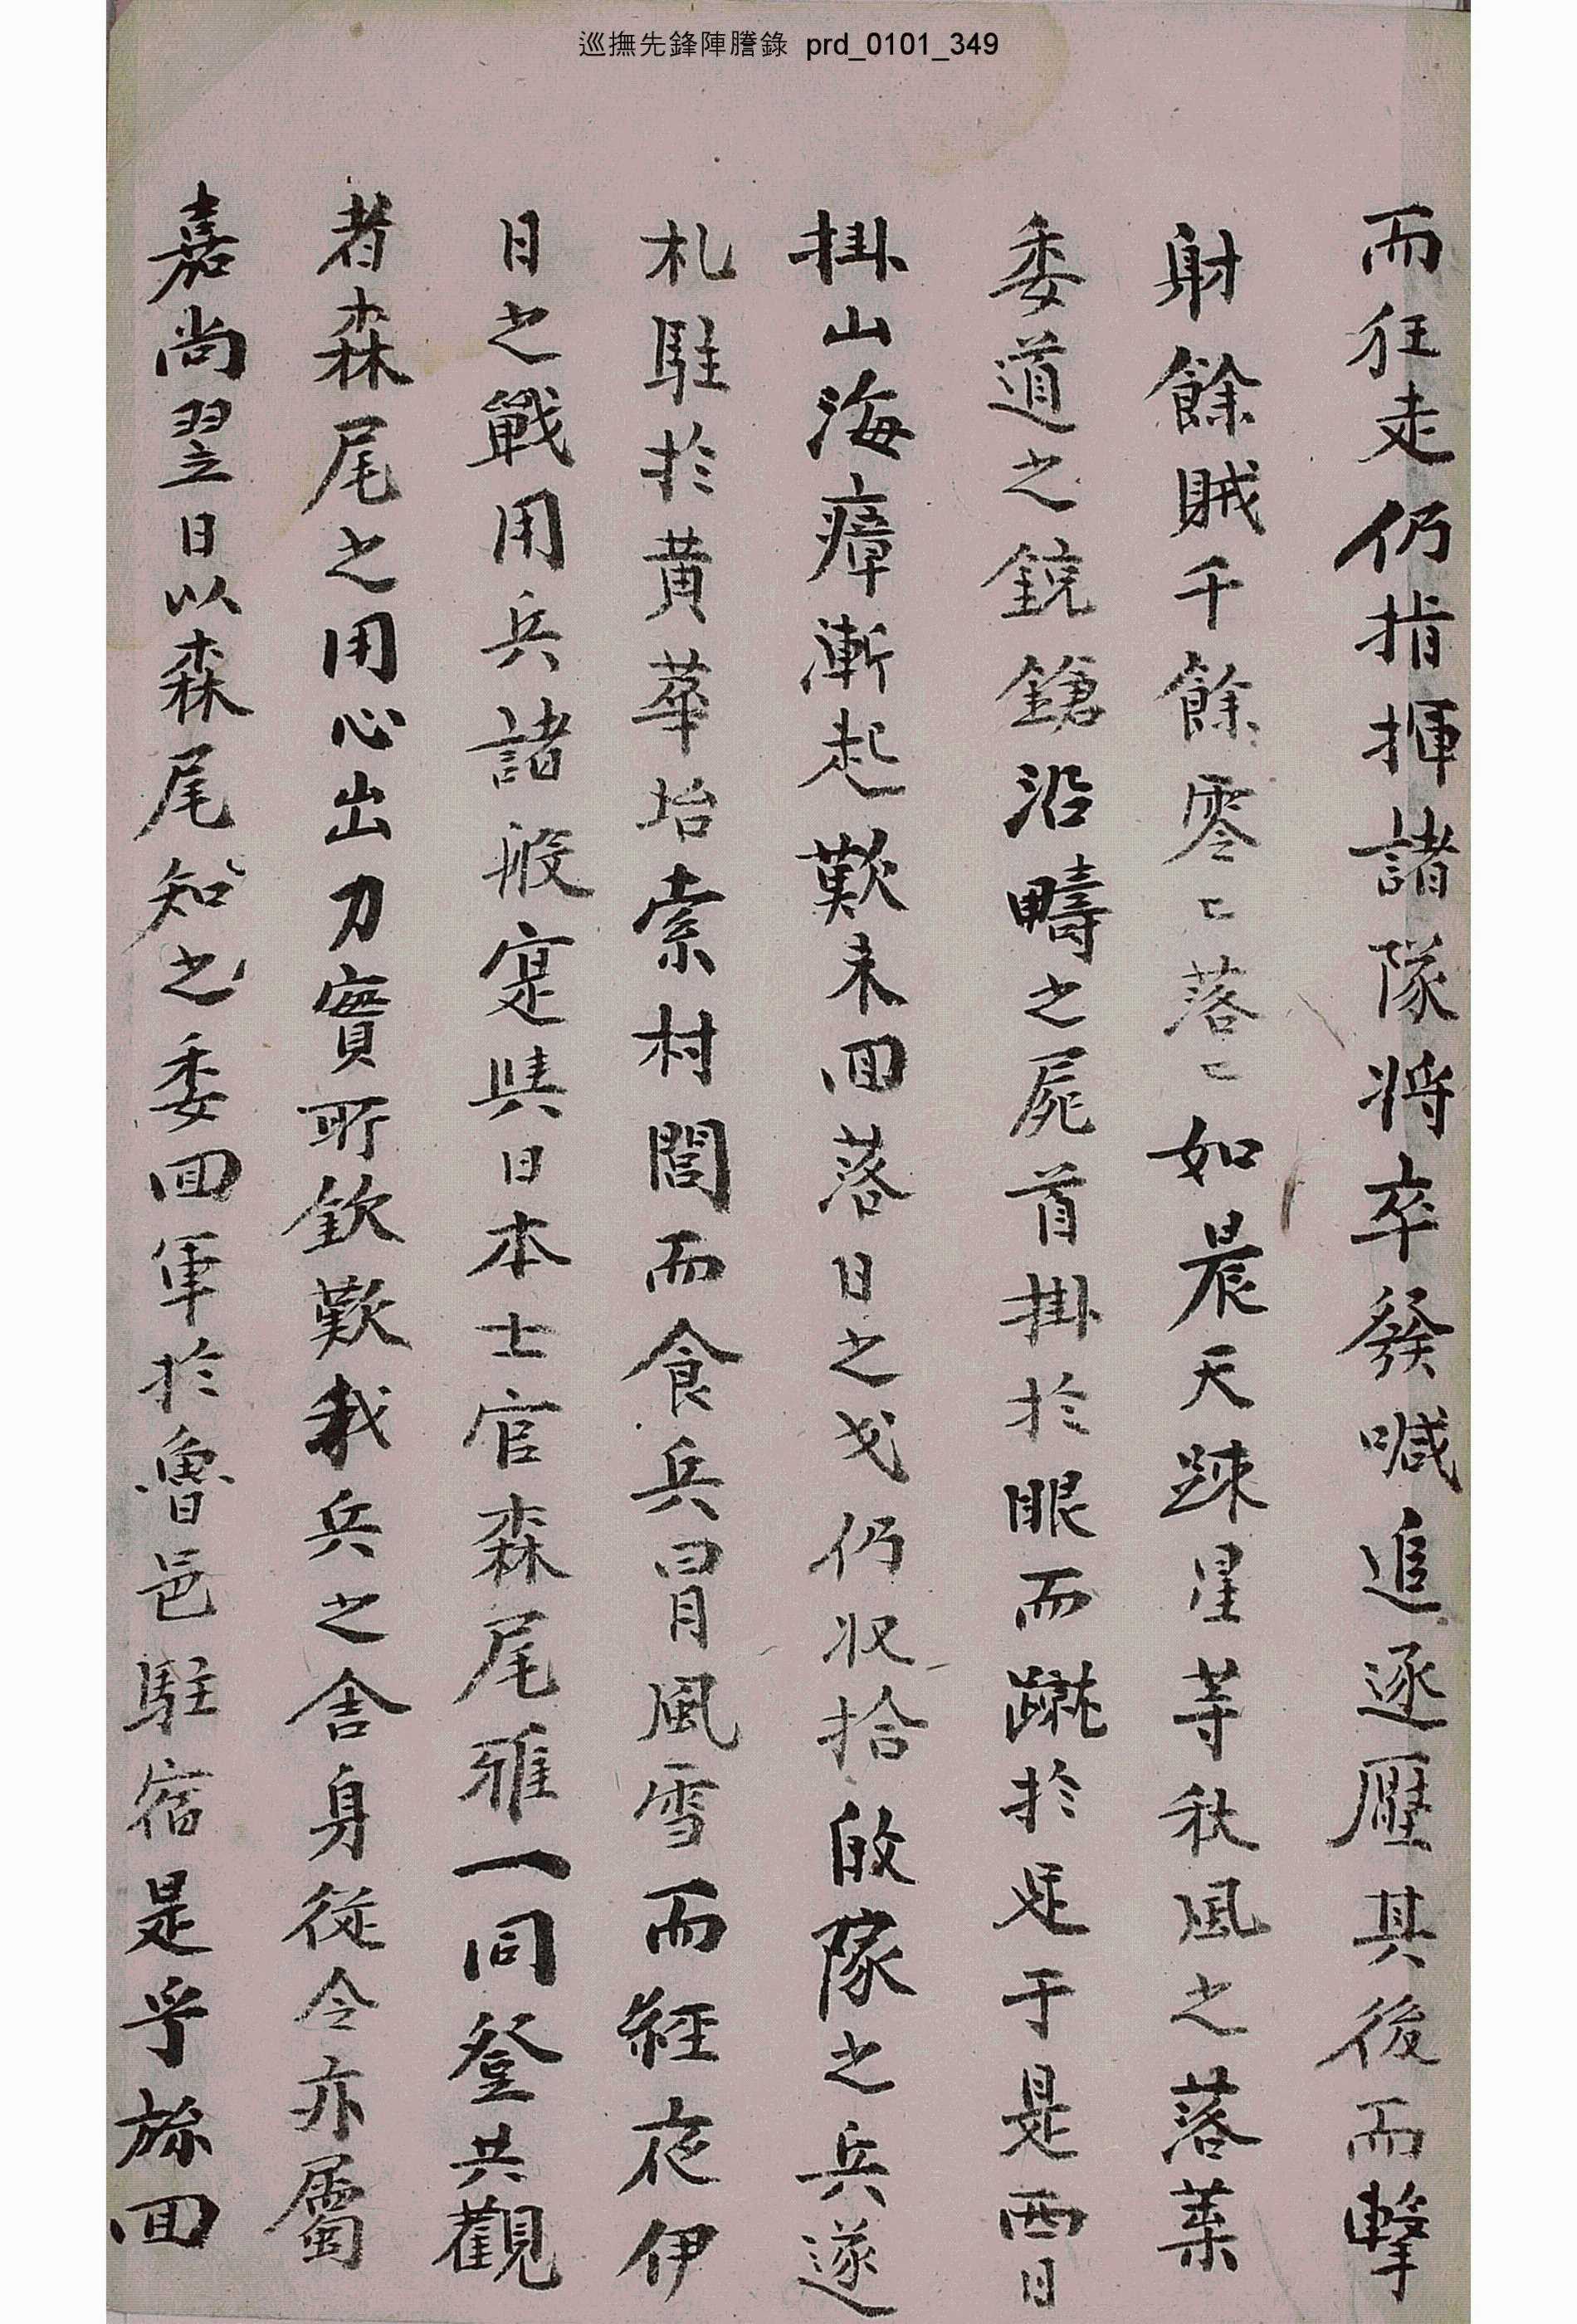 巡撫先鋒陣謄錄 prd_0101_349
而狂走仍指揮諸隊将卒發喊追逐壓其後而擊
射餘賊千餘零〻落〻如晨天踈星等秋風之落葉
委道之銃鎗沿疇之屍首掛於眼而蹴於足于是西日
掛山海瘴漸起歎未回落日之戈仍收拾敀隊之兵遂
札駐於黄華坮索村閭而食兵冒風雪而経夜伊
日之戰用兵諸般寔與日本士官森尾雅一同登共觀
者森尾之用心出力實所欽歎我兵之舍身従令亦屬
嘉尚翌日以森尾知之委回軍於魯邑駐宿是乎旀回